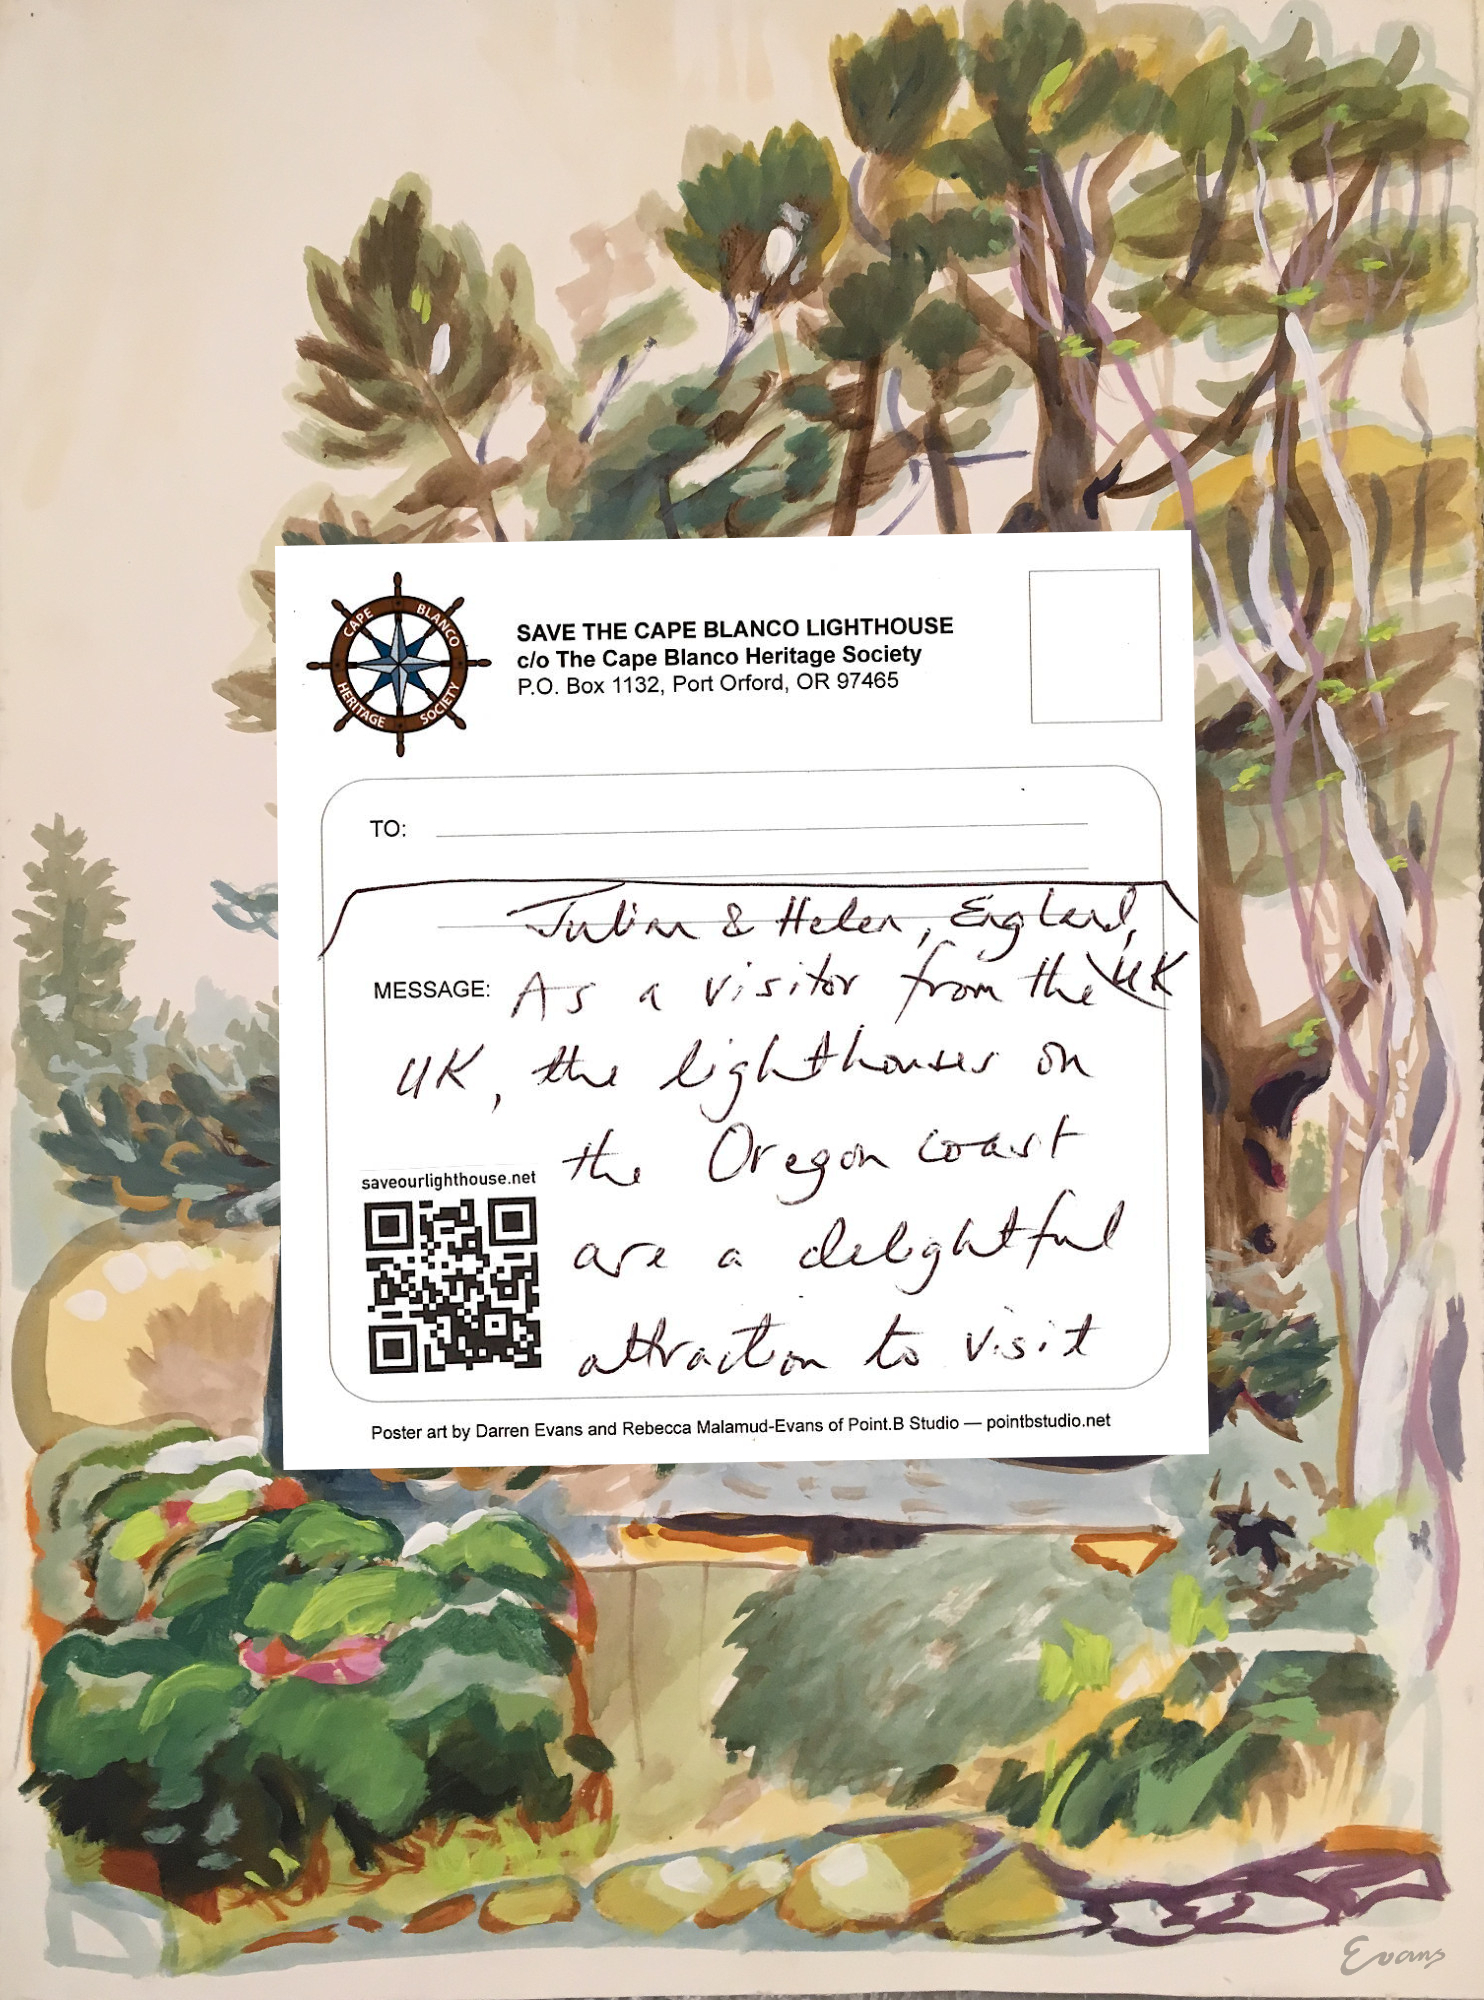 CAPE BLANCO
HERITAGE SOCIETY
SAVE THE CAPE BLANCO LIGHTHOUSE
c/o The Cape Blanco Heritage Society
P.O. Box 1132, Port Orford, OR 97465
TO:
Julian & Helen, England,
UK
MESSAGE: As a visitor from the
UK, the lighthouses on
the Oregon coast
are a delightful
attraction to visit
saveourlighthouse.net
Poster art by Darren Evans and Rebecca Malamud-Evans of Point.B Studio — pointbstudio.net
Evans